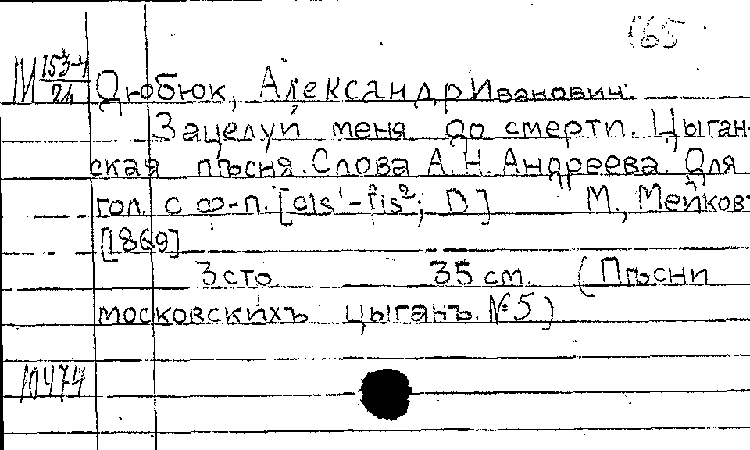 165
М 153-4/21 Дюбюк, Александр Иванович.
Зацелуй меня до смерти. Цыган-
ская пѣсня. Слова А. Н. Андреева. Для
гол. с ф-п. [cis¹-fis²; D] М., Мейковъ
[1869]
3 стр 35 см. (Пѣсни
московскихъ цыганъ. №5)